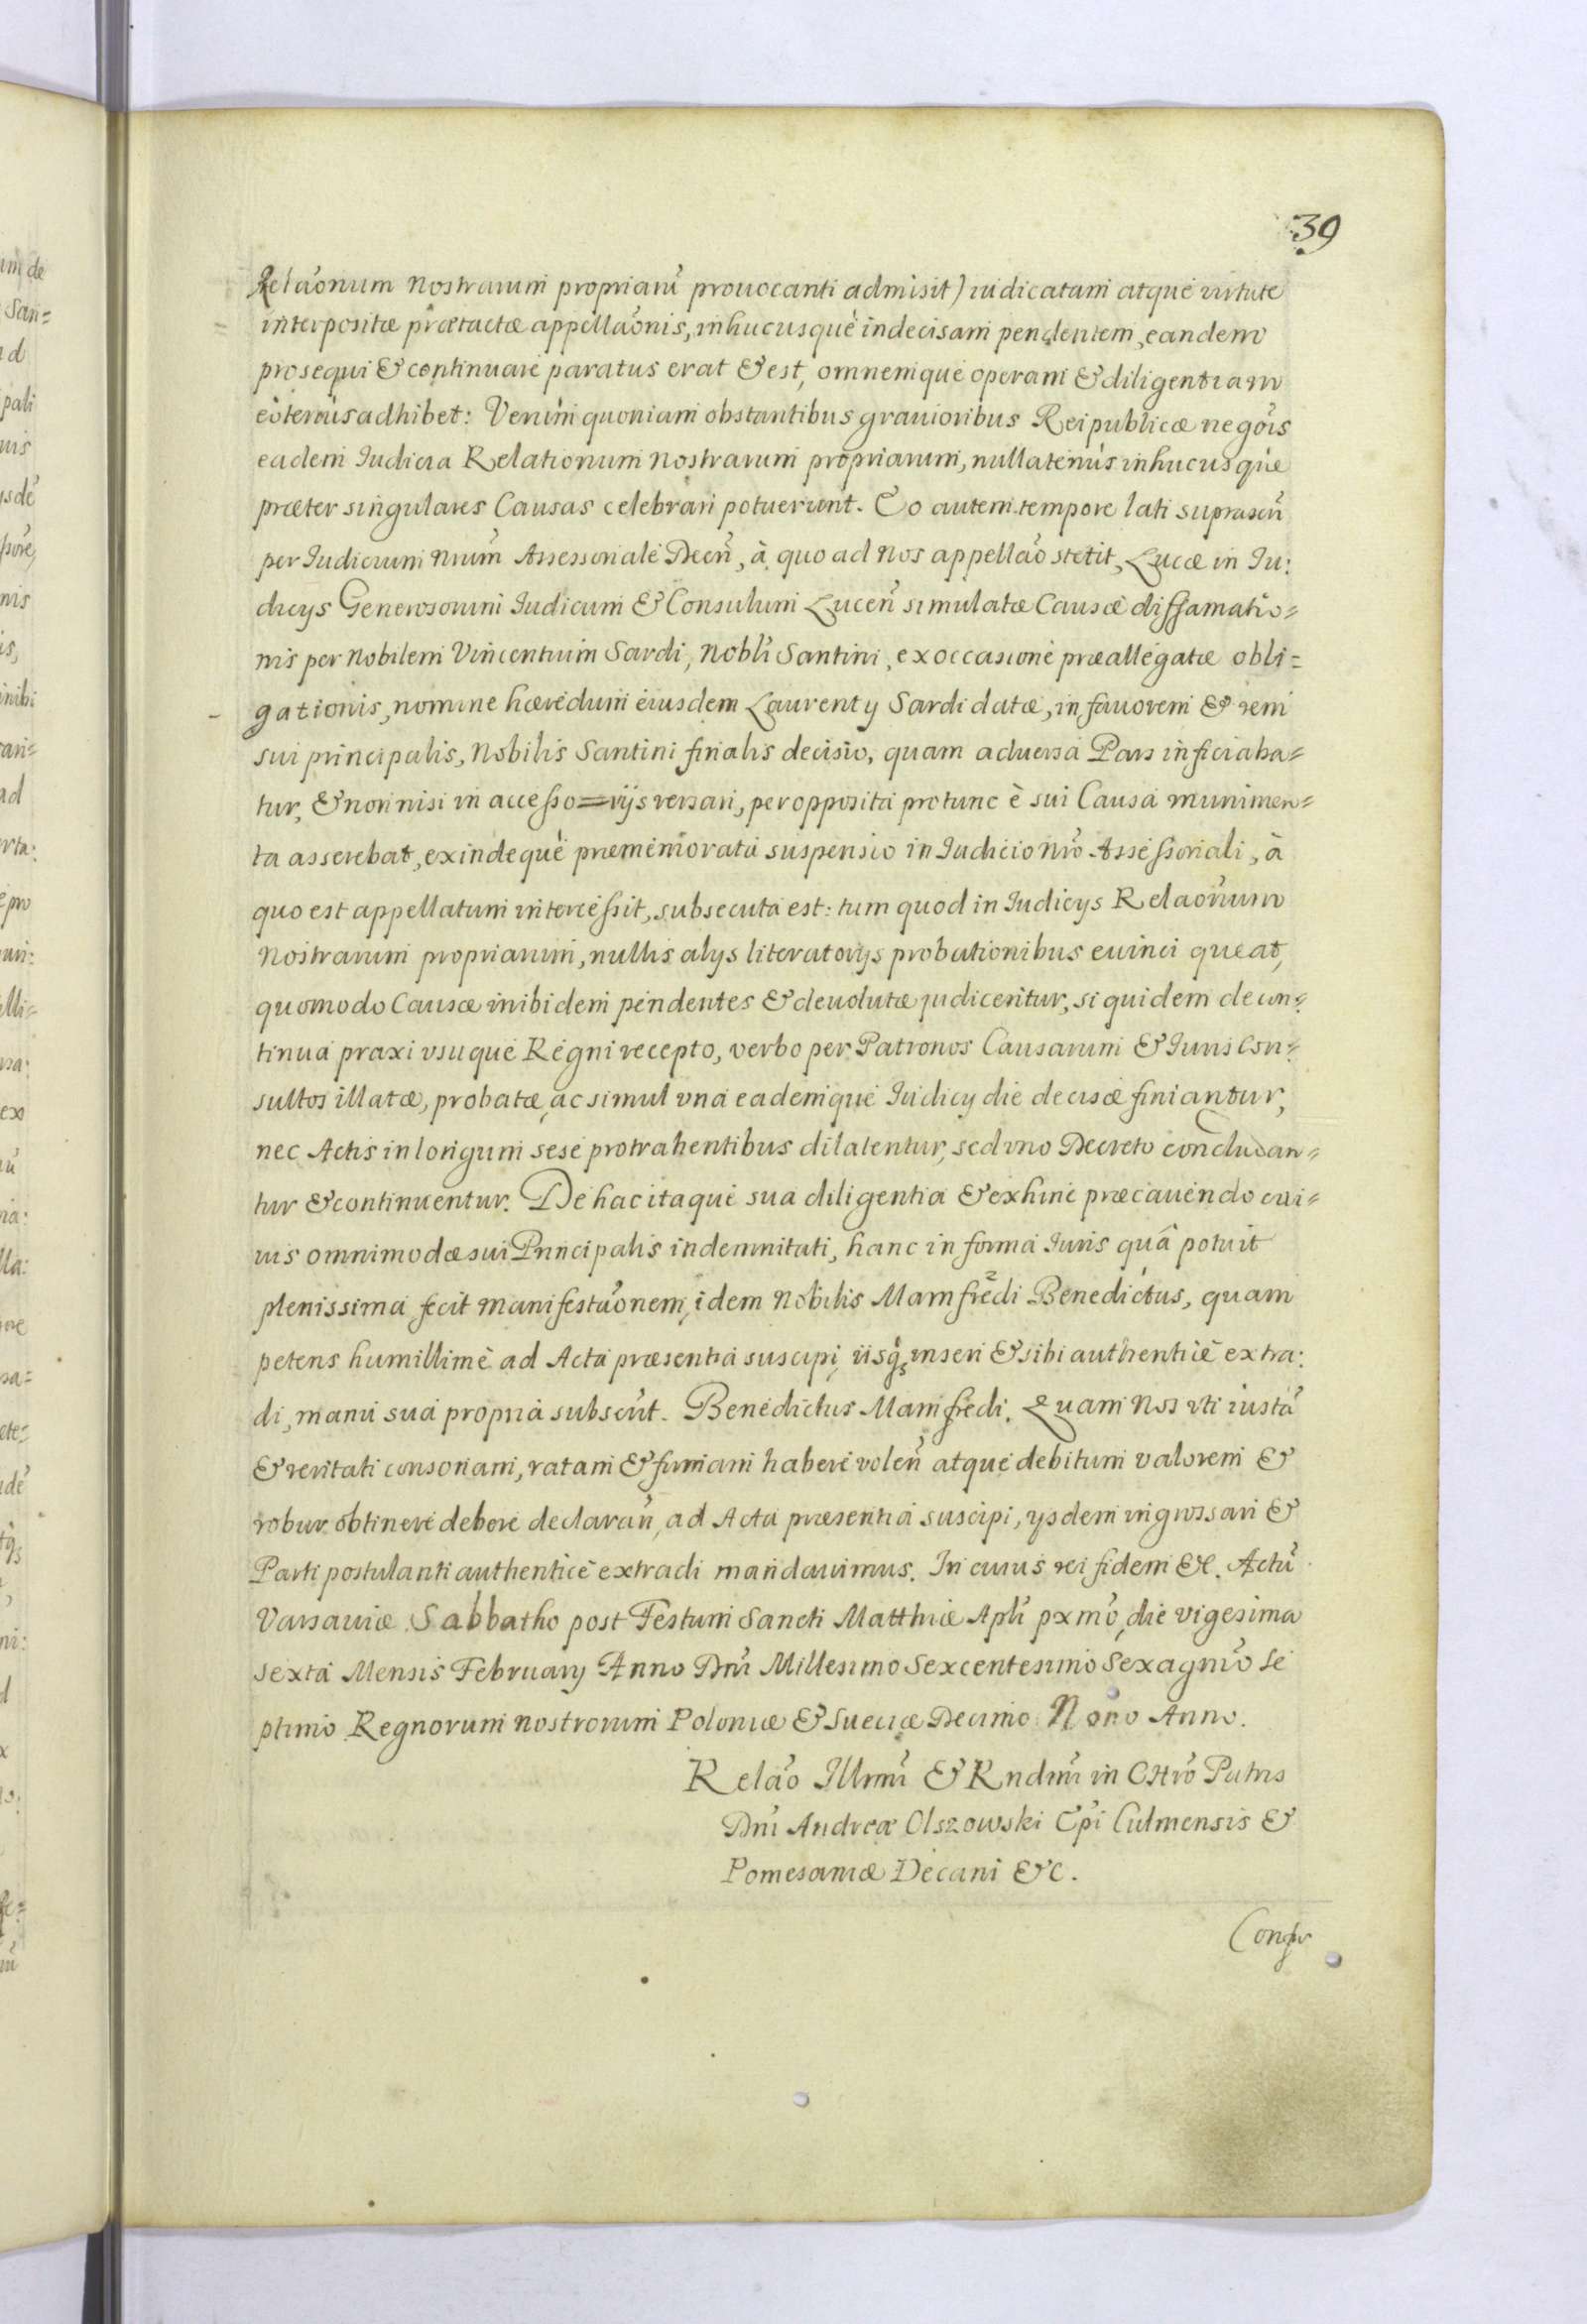 39
Relaõnum nostrarum propriarũ prouocanti admisit) iudicatam atque virtute
interpositæ prætactæ appellaõnis, inhucusque indecisam pendentem, eandem
prosequi & continuare paratus erat & est, omnemque operam & diligentiam
eotenus adhibet: Verùm quoniam obstantibus grauioribus Reipublicæ negõis
eadem Iudicia Relationum nostrarum propriarum, nullatenùs inhucusque
præter singulares Causas celebrari potuerunt. Eo autem tempore lati suprascrĩ
per Iudicium nrum̃ Assessoriale Decrĩ, à quo ad Nos appellaõ stetit, Lucæ in Iu:
dicijs Generosorum Iudicum & Consulum Lucen̂ simulatæ Causæ diffamatio=
nis per Nobilem Vincentium Sardi, Nobli Santini, ex occasione præallegatæ obli=
gationis, nomine hæredum eiusdem Laurentij Sardi datæ, in fauorem & rem
sui principalis, Nobilis Santini finalis decisio, quam aduersa Pars inficiaba=
tur, & non nisi in accesso=rijs versari, per opposita protunc è sui Causa munimen=
ta asserebat, exindeque præmemorata suspensio in Iudicio nrõ Assessoriali, à
quo est appellatum intercessit, subsecuta est: tum quod in Iudicijs Relaõnum
nostrarum propriarum, nullis alijs literatorijs probationibus euinci queat,
quomodo Causæ inibidem pendentes & deuolutæ judicentur, siquidem de con=
tinua praxi vsuque Regni recepto, verbo per Patronos Causarum & Iuris Con=
sultos illatæ, probatæ, ac simul vna eademque Iudicij die decisæ finiantur,
nec Actis in longum sese protrahentibus dilatentur, sed vno Decreto concludan=
tur & continuentur. De hac itaque sua diligentia & exhinc præcauendo cui=
uis omnimodæ sui Principalis indemnitati, hanc in forma Iuris quâ potuit
plenissima fecit manifestaõnem, idem Nobilis Mamfredi Benedictus, quam
petens humillimè ad Acta præsentia suscipi, iisq; inseri & sibi authenticè extra:
di, manu sua propria subscrĩt. Benedictus Mamfredi. Quam Nos vti iustã
& veritati consonam, ratam & firmam habere volen̂ atque debitum valorem &
robur obtinere debere declaran̂, ad Acta præsentia suscipi, ijsdem ingrossari &
Parti postulanti authenticè extradi mandauimus. In cuius rei fidem &c. Actũ
Varsauiæ Sabbatho post Festum Sancti Matthiæ Apli pxmõ, die vigesima
sexta Mensis February Anno Dnĩ Millesimo Sexcentesimo Sexagmõ Se
ptimo Regnorum nostrorum Poloniæ & Sueciæ Decimo Nono Anno.
Relaõ Illrmĩ & Rndmĩ in Chrõ Patris
Dnĩ Andreæ Olszowski Epĩ Culmensis &
Pomesaniæ Decani &c.